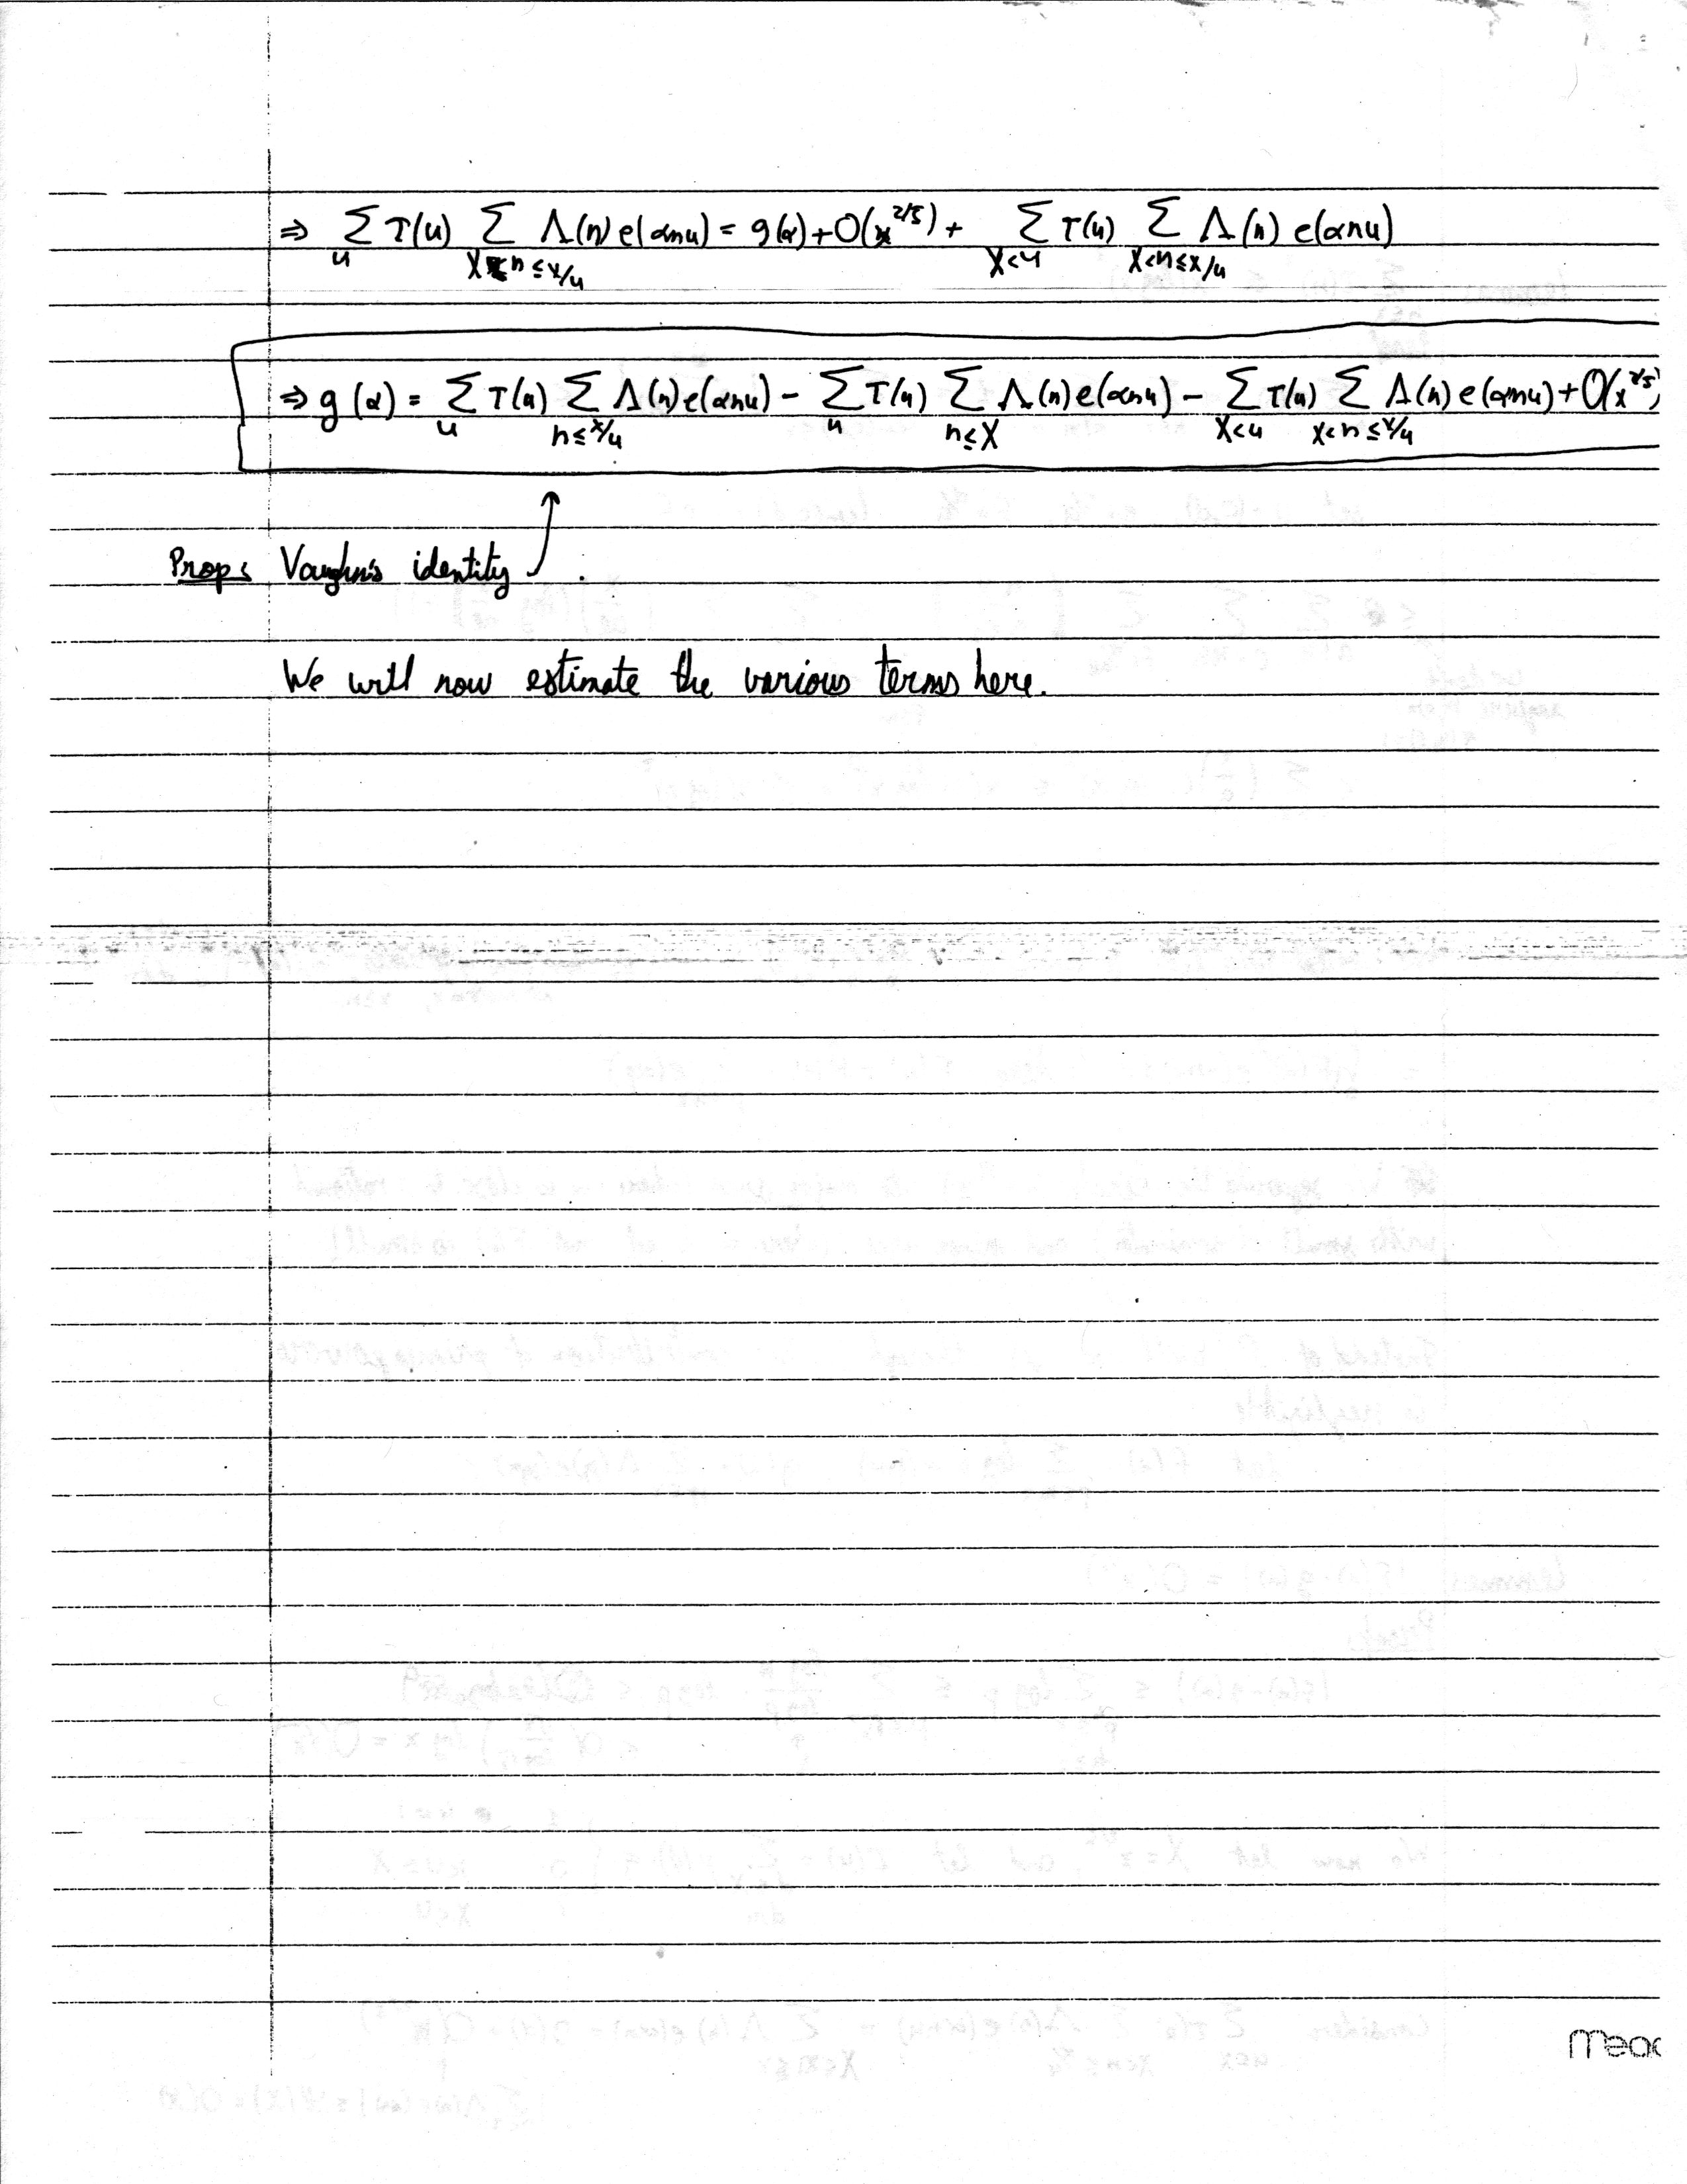 ⇒ Σ_u τ(u) Σ_{X<n≤x/u} Λ(n) e(αnu) = g(α) + O(x^{2/5}) + Σ_{X<u} τ(u) Σ_{X<n≤x/u} Λ(n) e(αnu)
⇒ g(α) = Σ_u τ(u) Σ_{n≤x/u} Λ(n) e(αnu) − Σ_u τ(u) Σ_{n≤X} Λ(n) e(αnu) − Σ_{X<u} τ(u) Σ_{X<n≤x/u} Λ(n) e(αnu) + O(x^{2/5})
Prop: Vaughn's identity
We will now estimate the various terms here.
Mead